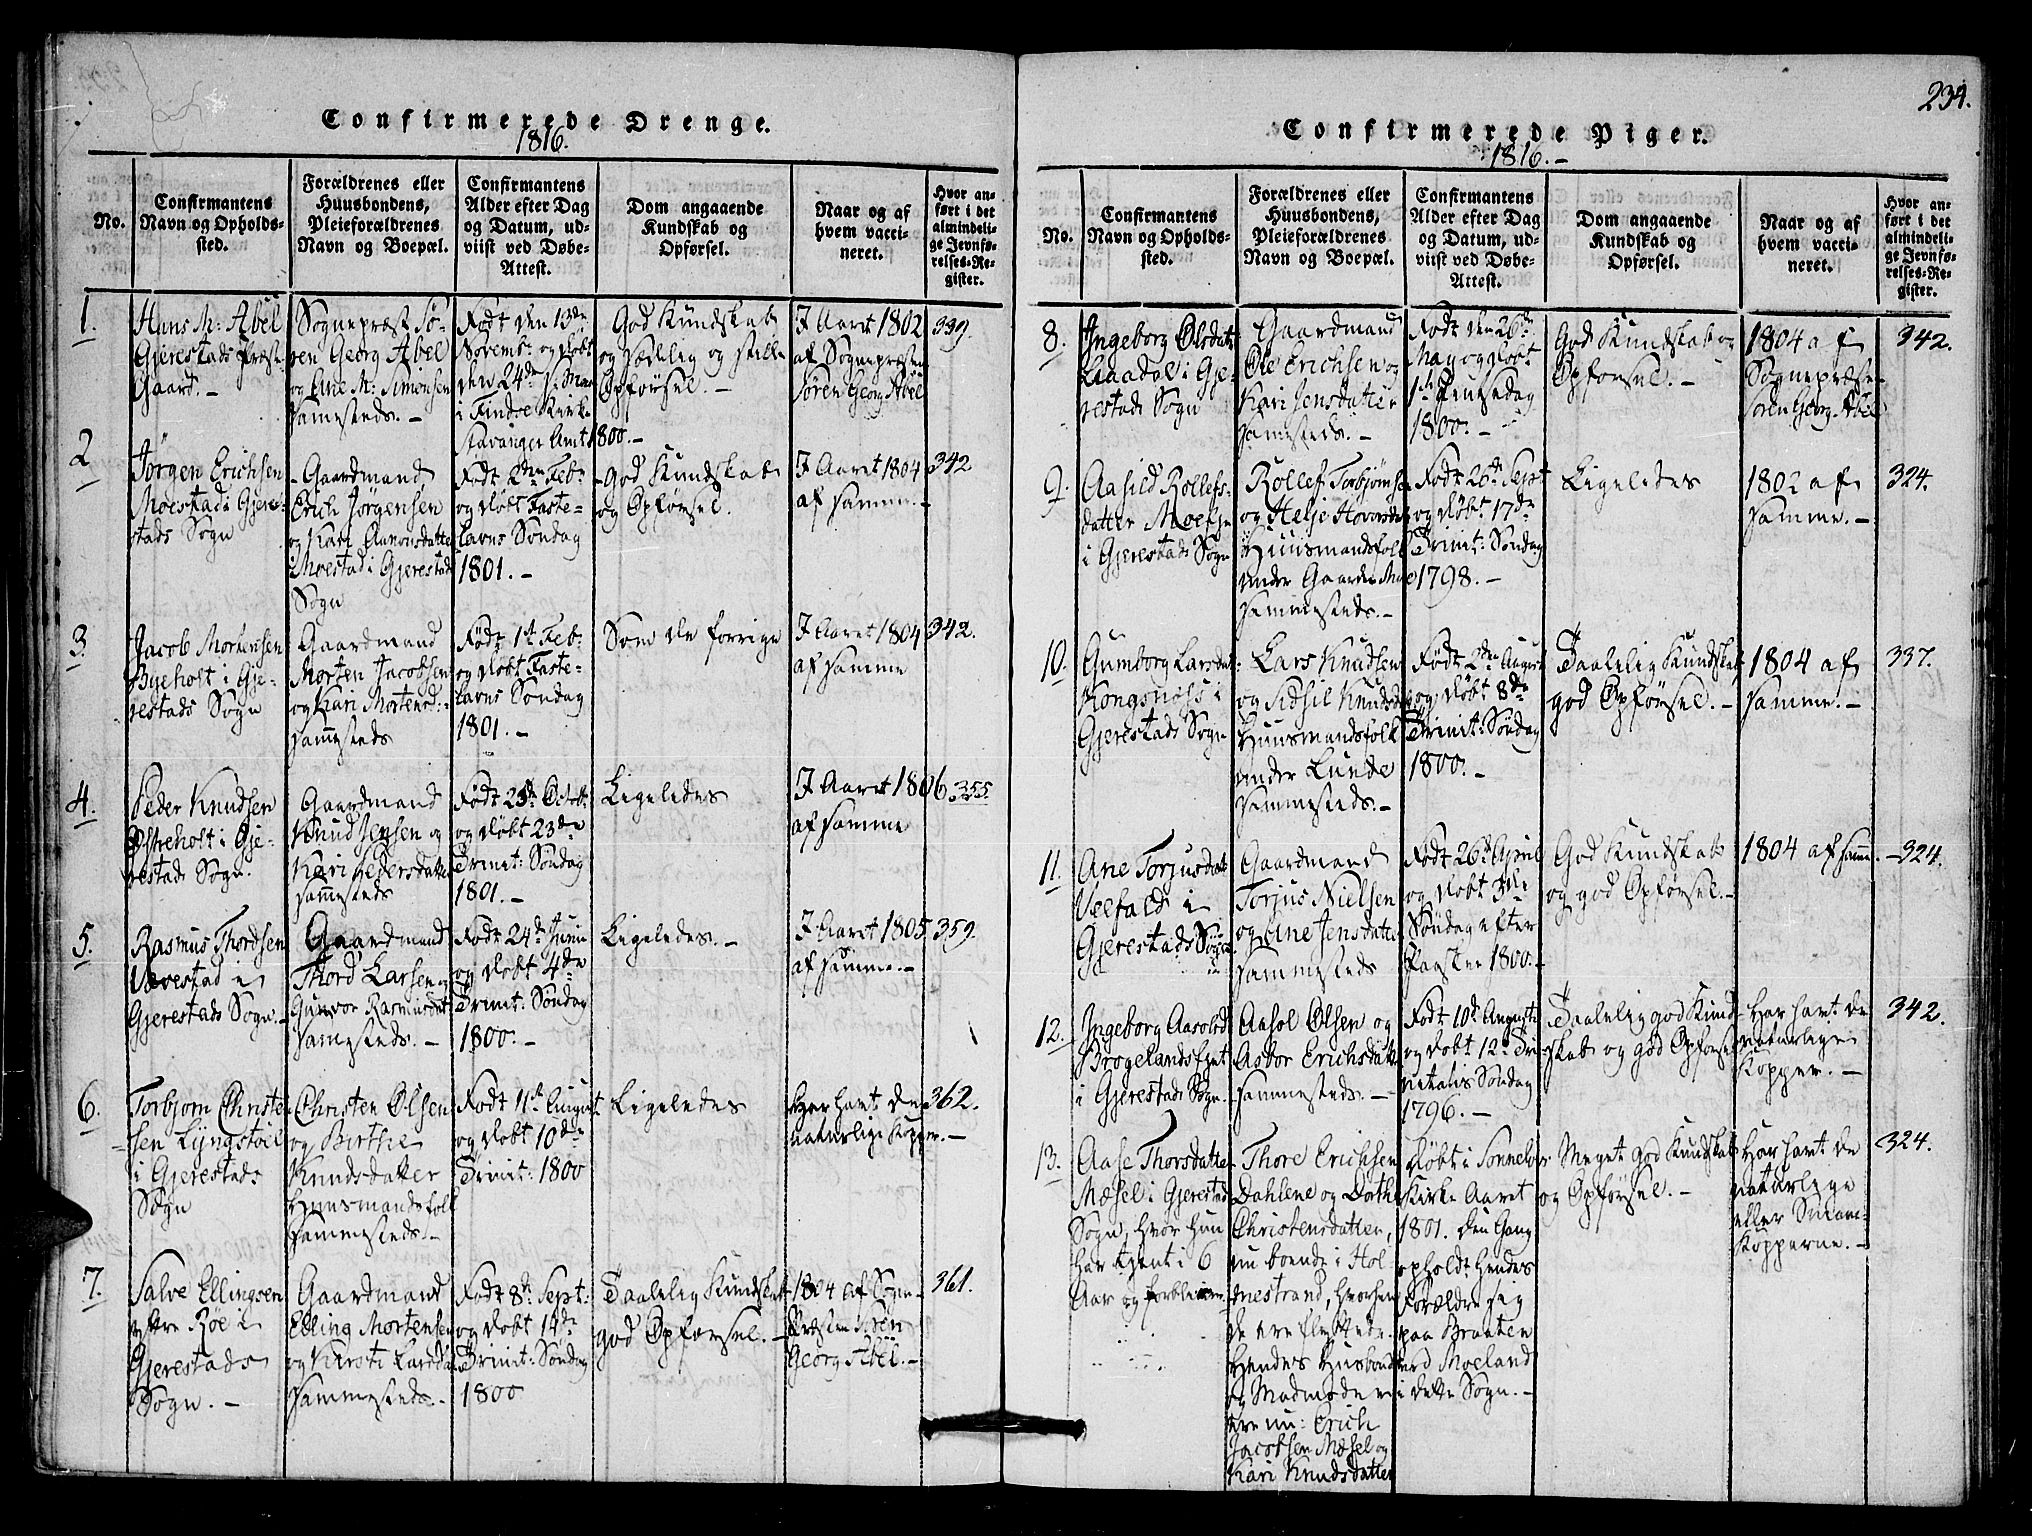 234.
Confirmerede Drenge.
1816.
No.
Confirmantens
Navn og Opholds-
sted.
Forældrenes eller
Huusbondens,
Pleieforældrenes
Navn og Boepæl.
Confirmantens
Alder efter Dag
og Datum, ud-
viist ved Døbe-
Attest.
Dom angaaende
Kundskab og
Opførsel.
Naar og af
hvem vacci-
neret.
Hvor an-
ført i det
almindeli-
ge Jevnfø-
relses-Re-
gister.
1.
Hans M: Abel
Gjerestads Præste
Gaard. -
Sognepræst Sø-
ren Georg Abel
og Ane M: Simonsen
sammesteds. -
Født den 13de
Novemb: og døbt
den 24de
i Findøe Kirke
Stavanger Amt 1800. -
God Kundskab
og sædelig og stille
Opførsel. -
I Aaret 1802
af Sognepræsten
Søren Georg Abel
339.
2
Jørgen Erichsen
Moestad i Gjere-
stads Sogn
Gaardmand
Erich Jørgensen
og Kari Aanonsdatter
Moestad i Gjerestads
Sogn
Født 2den Feb:
og døbt Faste-
lavns Søndag
1801. -
God Kundskab
og Opførsel.
I Aaret 1804
af samme. -
342
3.
Jacob Mortensen
Byeholt i Gje-
restads Sogn
Gaardmand
Morten Jacobsen
og Kari Mortensd:
sammesteds
Født 1ste Feb:
og døbt Faste-
lavns Søndag
1801. -
Som de forrige
I Aaret 1804
af samme
342.
4.
Peder Knudsen
Østreholt i Gje-
restads Sogn.
Gaardmand
Knud Jensen og
Kari Pedersdatter
sammesteds
Født 23de Octob:
og døbt 23de
Trinit: Søndag
1801. -
Ligeledes
I Aaret 1806
af samme
355.
5.
Rasmus Thordsen
Vævestad i
Gjerestads Sogn. -
Gaardmand
Thord Larsen og
Gunvor Rasmusdat:
sammesteds. -
Født 24de Juni
og døbt 4de
Trinit: Søndag
1800. -
Ligeledes. -
I Aaret 1805
af samme. -
359.
6.
Torbjørn Christen-
sen Lyngstøel
i Gjerestads
Sogn
Christen Olsen
og Birthe
Knudsdatter
Huusmandsfolk
sammesteds. -
Født 11te August
og døbt 10de
Trinit: 1800
Ligeledes
Har havt de
naturlige Kopper. -
362.
7.
Salve Ellingsen
østre Røe i
Gjerestads
Sogn. -
Gaardmand
Elling Mortensen
og Kirsti Larsda:
sammesteds. -
Født 8de Sept:
og døbt 14de
Trinit: Søndag
1800
Taalelig Kundskab
god Opførsel. -
1804 af Sogne-
Præsten Søren
Georg Abel. -
361.
Confirmerede Piger.
1816. -
No.
Confirmantens
Navn og Opholds-
sted.
Forældrenes eller
Huusbondens,
Pleieforældrenes
Navn og Boepæl.
Confirmantens
Alder efter Dag
og Datum, ud-
viist ved Døbe-
Attest.
Dom angaaende
Kundskab og
Opførsel.
Naar og af
hvem vacci-
neret.
Hvor an-
ført i det
almindeli-
ge Jevnfø-
relses-Re-
gister.
8.
Ingeborg Olsdat:
Aadal i Gje-
restads Sogn
Gaardmand
Ole Erichsen og
Kari Jensdatter
sammesteds. -
Født den 26de
May og døbt
1ste Pintsedag
1800. -
God Kundskab og
Opførsel. -
1804 af
Sognepræst
Søren Georg Abel
342.
9.
Aasild Rollefs-
datter Moe
i Gjerestads Sogn
Rollef Torbjørnsen
og Helje Hovorsd:
Huusmandsfolk
under Gaarden Moe
sammesteds. -
Født 20de Sept
og døbt 17de
Trinit: Søndag
1798. -
Ligeledes
1802 af
samme. -
324.
10.
Gumborg Larsdat:
Kongsnæss i
Gjerestads Sogn
Lars Knudsen
og Sidsil Knudsd:
Huusmandsfolk
under Lunde
sammesteds. -
Født 2den August
og døbt 8de
Trinit: Søndag
1800. -
Taalelig Kundskab,
god Opførsel. -
1804 af
samme. -
337.
11.
Ane Torjusdat:
Veefald i
Gjerestads Sogn
Gaardmand
Torjus Nielsen
og Ane Jensdatter
sammesteds
Født 26de April
og døbt 3die
Søndag efter
Paaske 1800. -
God Kundskab
og god Opførsel. -
1804 af samme. -
324.
12.
Ingeborg Aasolsd:
Brøgelandsfjet
i Gjerestads Sogn.
Aasol Olsen og
Asbor Erichsdatter
sammesteds. -
Født 10de Augusti
og døbt 12te Tri-
nitatis Søndag
1796. -
Taalelig god Kund-
skab og god Opførsel
Har havt de
naturlige
Kopper. -
342.
13.
Aase Thorsdatter
Mæsel i Gjerestads
Sogn, hvor hun
har tjent i 6
Aar og forbliver
Thore Erichsen
Dahlene og Dorthe
Christensdatter,
nu boende i Hol-
mestrand, hvorhen
de ere flyttede.
Hendes Husbond
og Madmoder
ere nu: Erich
Jacobsen Mæsel og
Kari Knudsdatter
Døbt i Sønneløv
Kirke Aaret
1801. den Gang
opholdt hendes
Forældre sig
paa Braaten
ved Moeland
i dette Sogn. -
Meget god Kundskab
og Opførsel. -
Har havt de
naturlige
eller Smaae
Kopperne. -
324.